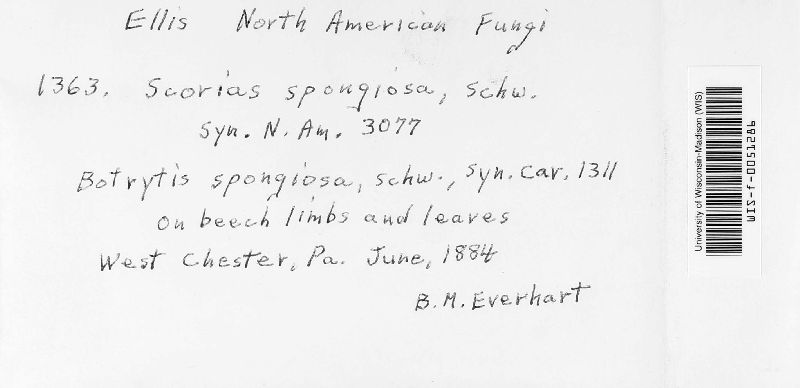 Ellis North American Fungi
1363. Scorias spongiosa, Schw.
Syn. N. Am. 3077
Botrytis spongiosa, Schw., Syn. Car. 1311
On beech limbs and leaves
West Chester, Pa. June, 1884
B. M. Everhart
University of Wisconsin-Madison (WIS)
WIS-f-0051286